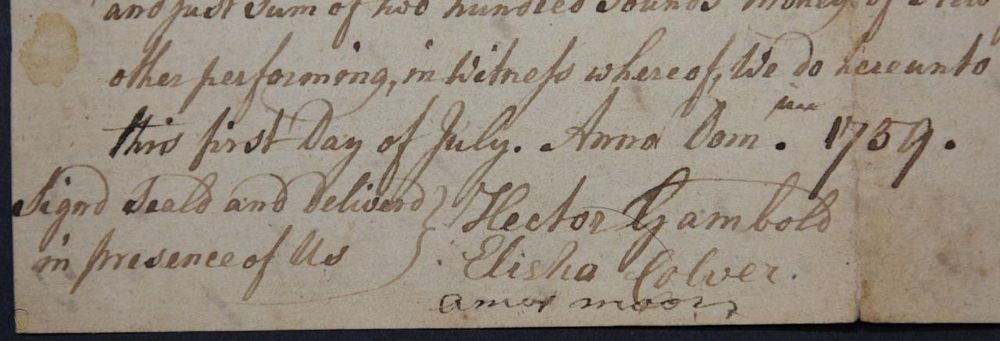 and just Sum of two hundred Pounds Money of New
other performing, in Witneſs whereof, We do hereunto
this first Day of July. Anno Dom. 1759.
Signd Seald and Deliverd } Hector Gambold
in presence of Us Elisha Colver.
amos moor